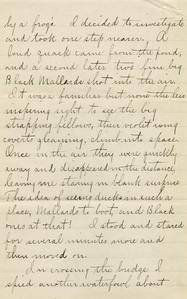 by a frog's. I decided to investigate
and took one step nearer. A
loud quack came from the pond,
and a second later two fine big
Black Mallards shot into the air.
It was a familiar but none the less
inspiring sight to see the big
strapping fellows, their violet wing
coverts gleaming, climb into space.
Once in the air they were quickly
away and disappeared in the distance,
leaving me staring in blank surprise
The idea of seeing ducks in such a
place, Mallards to boot and Black
ones at that! I stood and stared
for several minutes more and
then moved on.
In crossing the bridge I
spied another waterfowl, about